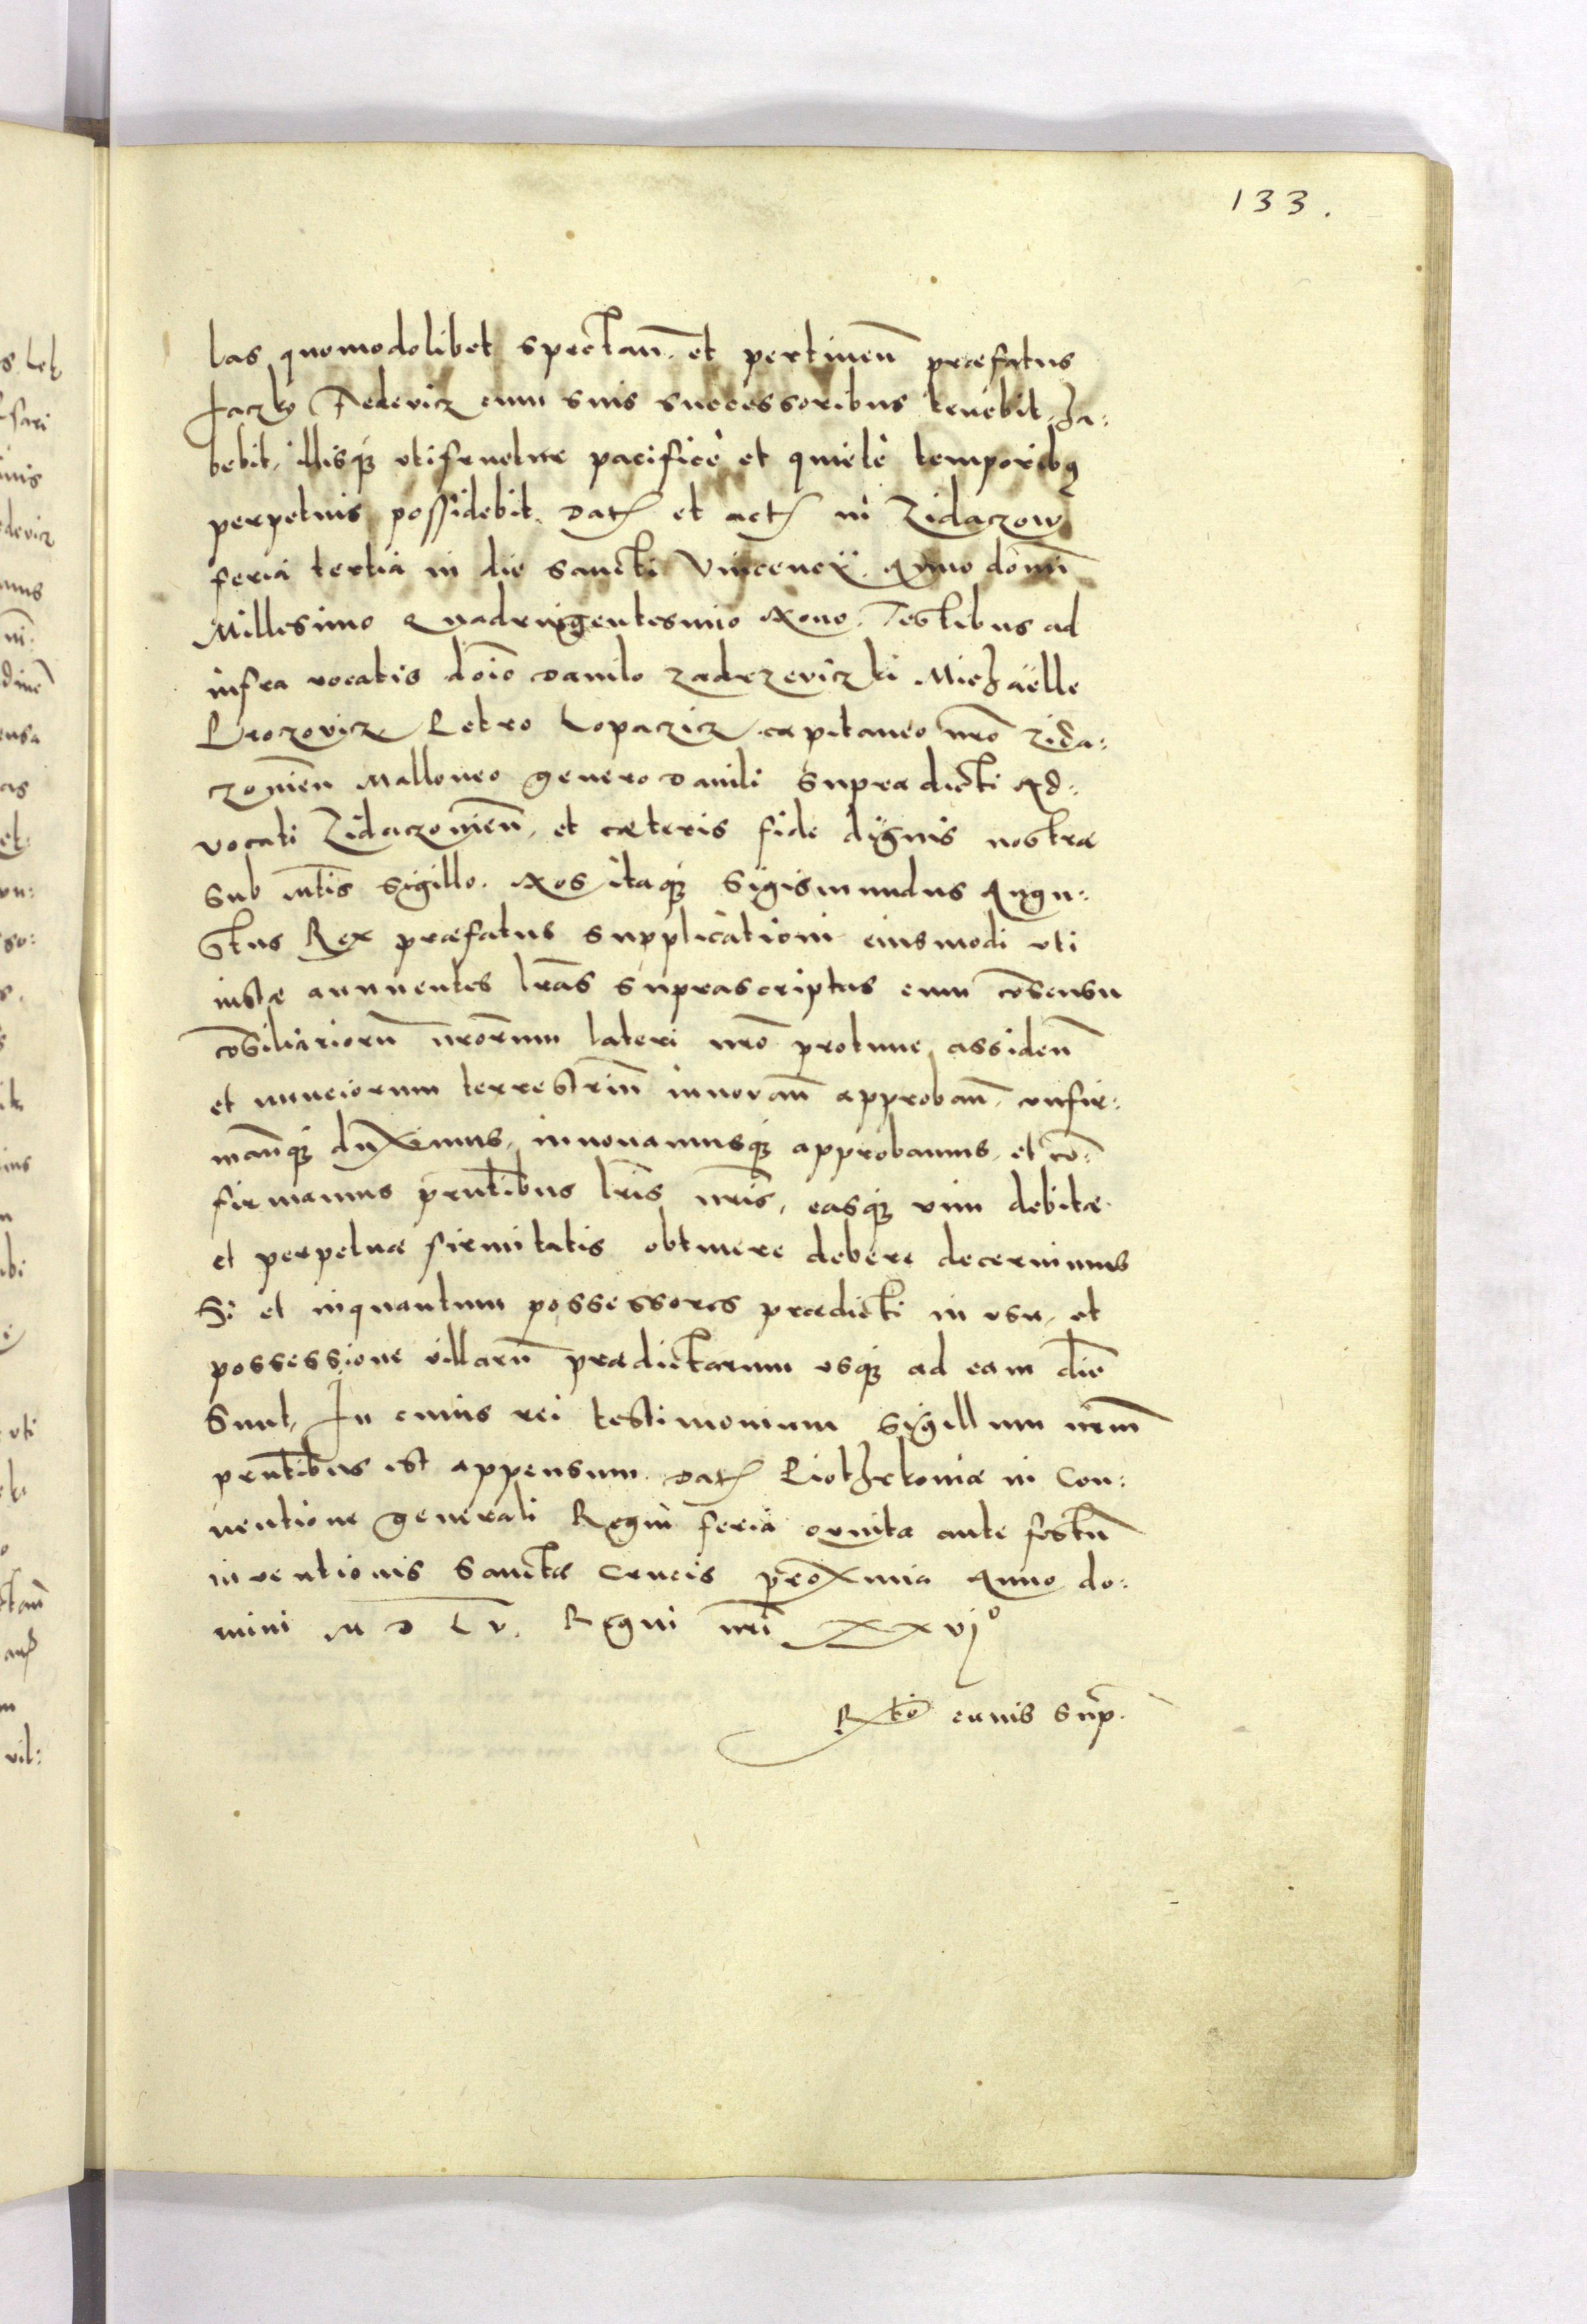 133.
las quomodolibet spectan̄. et pertinen̄ præfatus
Jaczko Fedevicz cum suis successoribus tenebit, ha:
bebit, illisq3 utifruetur pacificè et quietè temporibq
perpetuis possidebit. Dat et act in Zidaczow
feria tertia in die sancti Vincencÿ. Anno domīni
Millesimo Quadringentesimo Nono. Testibus ad
infra vocatis dōīo Danilo Zadrzeviczki Michaële
Procovicz Petro Lopaczicz capitaneo nrō Zida:
czovieñ Malloneo genero Danili supradicti Ad:
vocati Zidaczovieñ, et cæteris fide dignis nostræ
sub mtīs sigillo. Nos itaq3 Sigismundus Augu:
stus Rex præfatus supplicationi eiusmodi uti
iustæ annuentes lrās suprascriptas cum cōsensu
cōsiliariorū nrōrum lateri nrō protunc assideñ
et nunciorum terrestriū innovañ approbañ, confir:
mañq3 duximus, innovamusq3 approbamus, et cō:
firmamus pn̄tibus lrīs nrīs, easq3 vim debitæ
et perpetuæ firmitatis obtinere debere decernimus
Si et inquantum possessores prædicti in usu, et
possessione villarū prædictarum usq3 ad eam diē
sunt, In cuius rei testimonium sigillum nrūm
pn̄tibus est appensum. Dat Piothrkoviæ in Con:
ventione generali Regni feria quinta ante festū
inventionis Sanctæ Crucis proxima Anno do:
mini M D L V. Regni nrī XXVIº
Rtō eiuis sup̄.